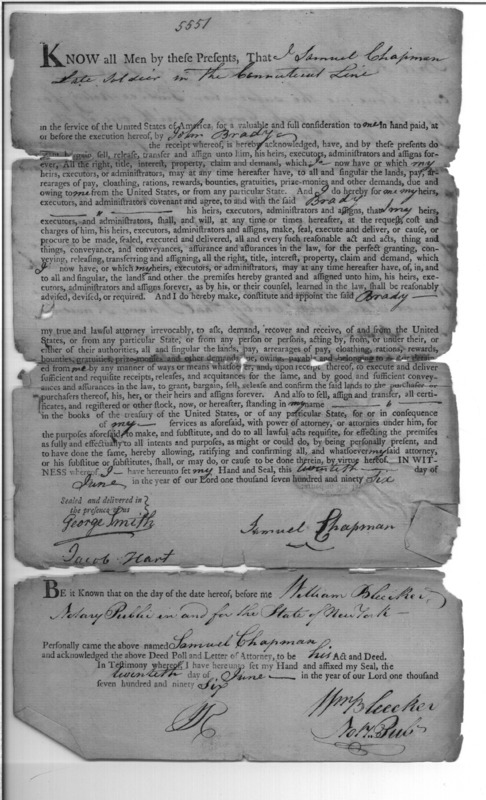 5551
KNOW all Men by these Presents, That I Samuel Chapman
Late Soldier in the Connecticut Line
in the service of the United States of America, for a valuable and full consideration to me in hand paid, at
or before the execution hereof, by John Brady
the receipt whereof, is hereby acknowledged, have, and by these presents do
sell, release, transfer and assign unto him, his heirs, executors, administrators and assigns for-
ever, All the right, title, interest, property, claim and demand, which I now have or which my
heirs, executors, or administrators, may at any time hereafter have, to all and singular the lands, pay, ar-
rearages of pay, cloathing, rations, rewards, bounties, gratuities, prize-monies and other demands, due and
owing to me from the United States, or from any particular State. And I do hereby for my heirs,
executors, and administrators covenant and agree, to and with the said Brady
his heirs, executors, administrators and assigns, that my heirs,
executors, and administrators, shall, and will, at any time or times hereafter, at the request, cost and
charges of him, his heirs, executors, administrators and assigns, make, seal, execute and deliver, or cause, or
procure to be made, sealed, executed and delivered, all and every such reasonable act and acts, thing and
things, conveyance, and conveyances, assurance and assurances in the law, for the perfect granting, con-
veying, releasing, transferring and assigning, all the right, title, interest, property, claim and demand, which
I now have, or which my heirs, executors, or administrators, may at any time hereafter have, of, in, and
to all and singular, the lands and other the premises hereby granted and assigned unto him, his heirs, exe-
cutors, administrators and assigns forever, as by his, or their counsel, learned in the law, shall be reasonably
advised, devised, or required. And I do hereby make, constitute and appoint the said Brady
my true and lawful attorney irrevocably, to ask, demand, recover and receive, of and from the United
States, or from any particular State, or from any person or persons, acting by, from, or under their, or
either of their authorities, all and singular the lands, pay, arrearages of pay, cloathing, rations, rewards,
bounties, gratuities, prize-monies and other demands, or, owing, payable and belonging
ed from me by any manner of ways or means whatsoever, and, upon receipt thereof, to execute and deliver
sufficient and requisite receipts, releases, and acquittances for the same, and by good and sufficient convey-
ances and assurances in the law, to grant, bargain, sell, release and confirm the said lands to the purchaser
purchasers thereof, his, her, or their heirs and assigns forever. And also to sell, assign and transfer, all certi-
ficates, and registered or other stock, now, or hereafter, standing in my name
in the books of the treasury of the United States, or of any particular State, for or in consequence
of my services as aforesaid, with power of attorney, or attornies under him, for
the purposes aforesaid to make, and substitute, and do to all lawful acts requisite, for effecting the premises
as fully and effectually to all intents and purposes, as might or could do, by being personally present, and
to have done the same, hereby allowing, ratifying and confirming all, and whatsoever my said attorney,
or his substitute or substitutes, shall, or may do, or cause to be done therein, by virtue hereof. IN WIT-
NESS whereof, I have hereunto set my Hand and Seal, this twentieth day of
June in the year of our Lord one thousand seven hundred and ninety Six
Sealed and delivered in
the presence of us
George Smith
Samuel Chapman
Jacob Hart
BE it Known that on the day of the date hereof, before me William Bleecker
Notary Public in and for the State of New York
Personally came the above named Samuel Chapman
and acknowledged the above Deed Poll and Letter of Attorney, to be his Act and Deed.
In Testimony whereof, I have hereunto set my Hand and affixed my Seal, the
twentieth day of June in the year of our Lord one thousand
seven hundred and ninety Six
Wm Bleecker
Noty Pub